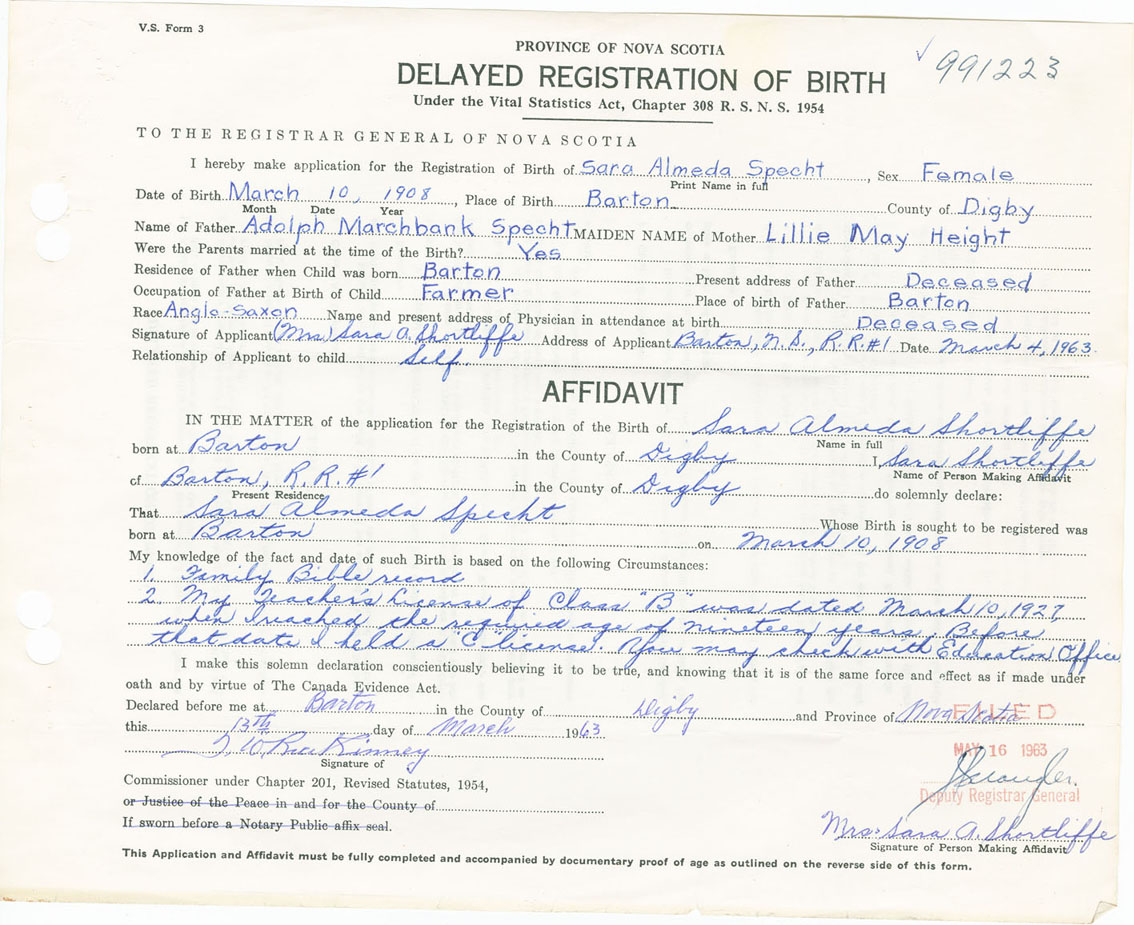 V.S. Form 3
PROVINCE OF NOVA SCOTIA
✓ 991223
DELAYED REGISTRATION OF BIRTH
Under the Vital Statistics Act, Chapter 308 R. S. N. S. 1954
TO THE REGISTRAR GENERAL OF NOVA SCOTIA
I hereby make application for the Registration of Birth of Sara Almeda Specht, Sex Female
Print Name in full
Date of Birth March 10, 1908, Place of Birth Barton County of Digby
Month Date Year
Name of Father Adolph Marchbank Specht MAIDEN NAME of Mother Lillie May Height
Were the Parents married at the time of the Birth? Yes
Residence of Father when Child was born Barton Present address of Father Deceased
Occupation of Father at Birth of Child Farmer Place of birth of Father Barton
Race Anglo-Saxon Name and present address of Physician in attendance at birth Deceased
Signature of Applicant (Mrs.) Sara A. Shortliffe Address of Applicant Barton, N.S., R.R.#1 Date March 4, 1963.
Relationship of Applicant to child Self.
AFFIDAVIT
IN THE MATTER of the application for the Registration of the Birth of Sara Almeda Shortliffe
Name in full
born at Barton in the County of Digby I, Sara Shortliffe
Name of Person Making Affidavit
of Barton, R.R.#1 in the County of Digby do solemnly declare:
Present Residence
That Sara Almeda Specht Whose Birth is sought to be registered was
born at Barton on March 10, 1908
My knowledge of the fact and date of such Birth is based on the following Circumstances:
1. Family Bible record
2. My Teacher's License of Class "B" was dated March 10, 1927,
when I reached the required age of nineteen years. Before
that date I held a "C" license. You may check with Education Office
I make this solemn declaration conscientiously believing it to be true, and knowing that it is of the same force and effect as if made under
oath and by virtue of The Canada Evidence Act.
Declared before me at Barton in the County of Digby and Province of Nova Scotia
FILED
this 13th day of March 1963
MAY 16 1963
Kinney
Signature of
Commissioner under Chapter 201, Revised Statutes, 1954,
Deputy Registrar General
or Justice of the Peace in and for the County of
If sworn before a Notary Public affix seal.
Mrs. Sara A. Shortliffe
Signature of Person Making Affidavit
This Application and Affidavit must be fully completed and accompanied by documentary proof of age as outlined on the reverse side of this form.